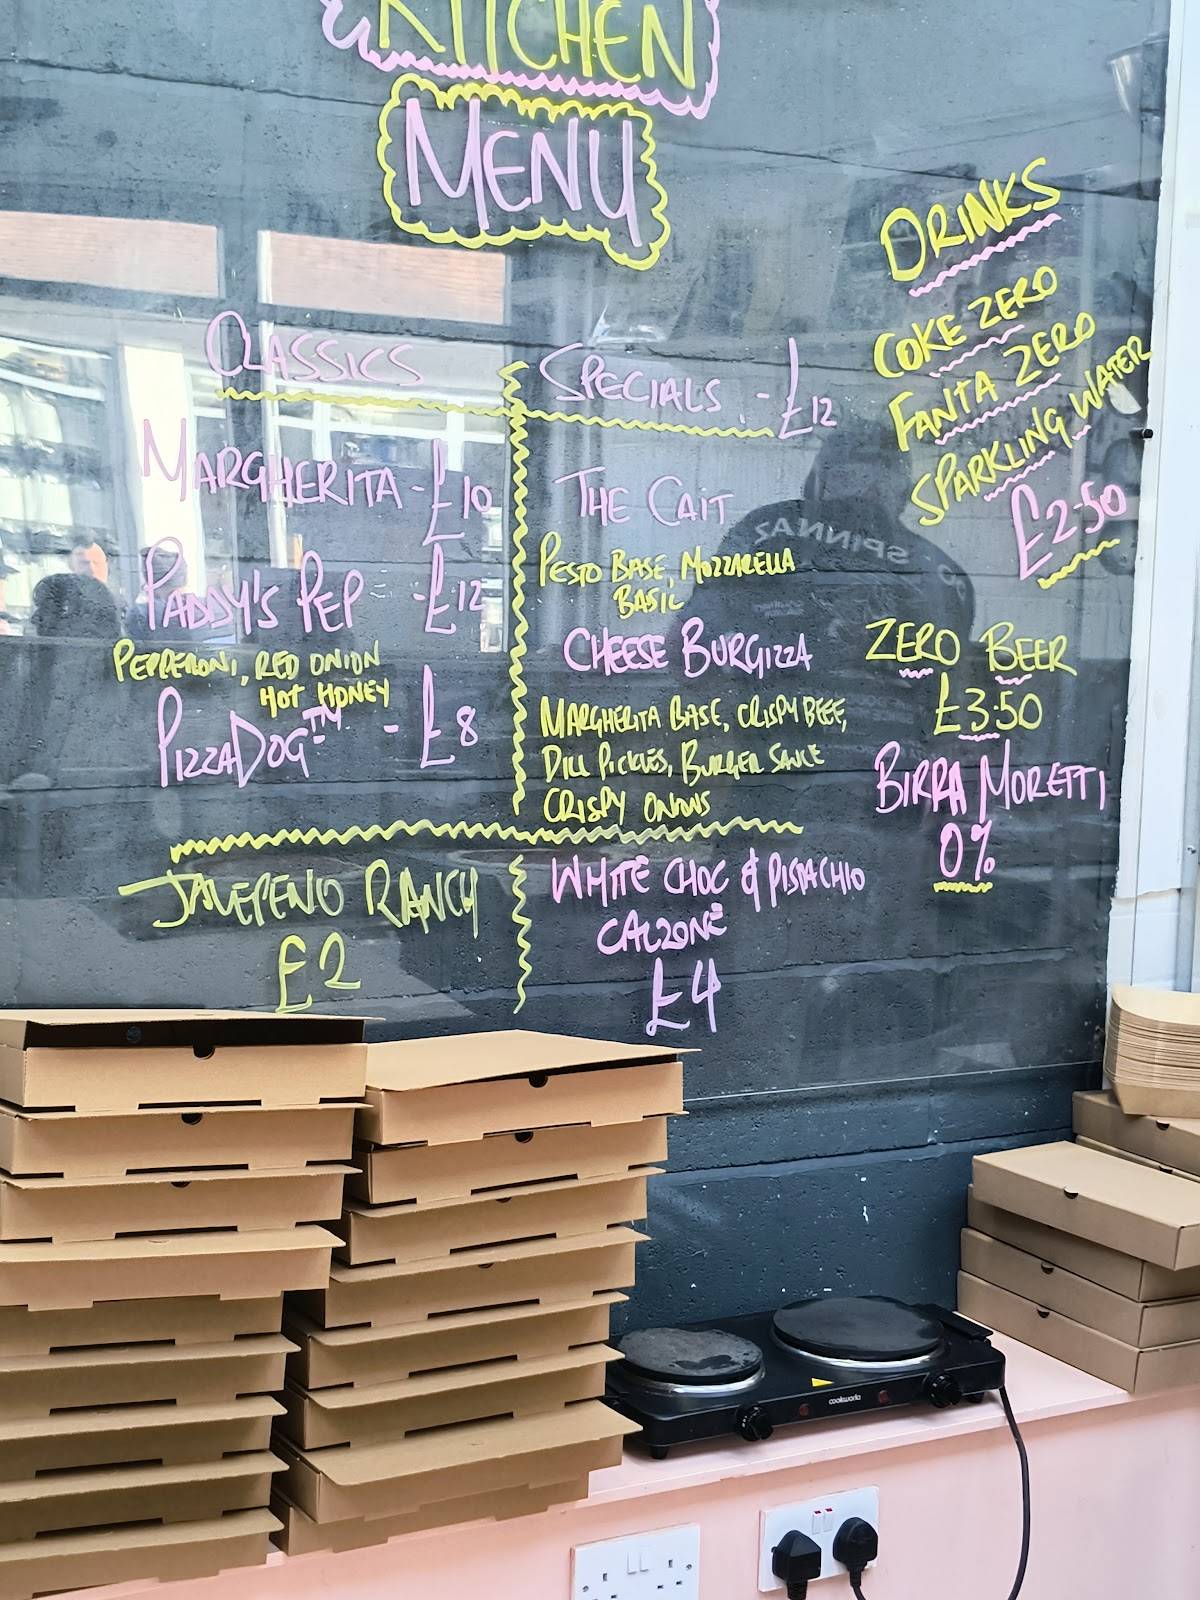 KITCHEN
MENU
CLASSICS
MARGHERITA - £10
PADDY'S PEP - £12
PEPPERONI, RED ONION
HOT HONEY
PIZZADOG™ - £8
SPECIALS - £12
THE CAIT
PESTO BASE, MOZZARELLA
BASIL
CHEESE BURGIZZA
MARGHERITA BASE, CRISPY BEEF,
DILL PICKLES, BURGER SAUCE
CRISPY ONIONS
JALEPENO RANCH
£2
WHITE CHOC & PISTACHIO
CALZONE
£4
DRINKS
COKE ZERO
FANTA ZERO
SPARKLING WATER
£2.50
ZERO BEER
£3.50
BIRRA MORETTI
0%
SPINNAZ
cookworks